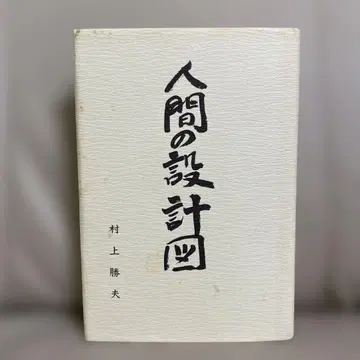 人間の設計図
村上勝夫